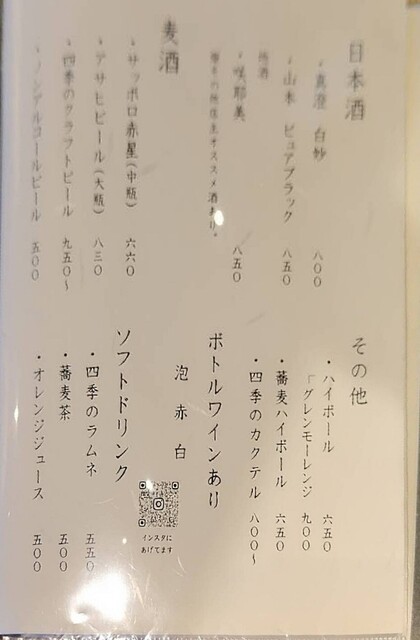 日本酒
・真澄 白妙 八〇〇
・山本 ピュアブラック 八五〇
梅酒
・咲耶美 八五〇
麦酒
・サッポロ赤星(中瓶) 六六〇
・アサヒビール(大瓶) 八三〇
・四季のクラフトビール 九五〇〜
・ノンアルコールビール 五〇〇
その他
・ハイボール 六五〇
「グレンモーレンジ 九〇〇
・蕎麦ハイボール 六五〇
・四季のカクテル 八〇〇〜
ボトルワインあり
泡 赤 白
インスタに
あげてます
ソフトドリンク
・四季のラムネ 五五〇
・蕎麦茶 五〇〇
・オレンジジュース 五〇〇